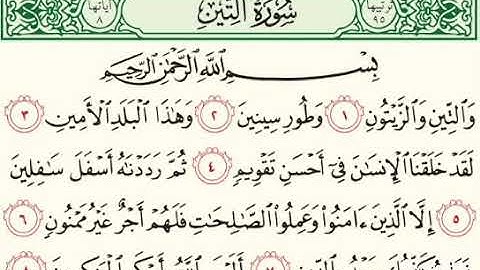 ترتيبها ٩٥ سُورَةُ التِّينِ آياتها ٨
بِسْمِ اللَّهِ الرَّحْمَٰنِ الرَّحِيمِ
وَالتِّينِ وَالزَّيْتُونِ ١ وَطُورِ سِينِينَ ٢ وَهَٰذَا الْبَلَدِ الْأَمِينِ ٣
لَقَدْ خَلَقْنَا الْإِنسَانَ فِي أَحْسَنِ تَقْوِيمٍ ٤ ثُمَّ رَدَدْنَاهُ أَسْفَلَ سَافِلِينَ
٥ إِلَّا الَّذِينَ ءَامَنُوا وَعَمِلُوا الصَّالِحَاتِ فَلَهُمْ أَجْرٌ غَيْرُ مَمْنُونٍ ٦